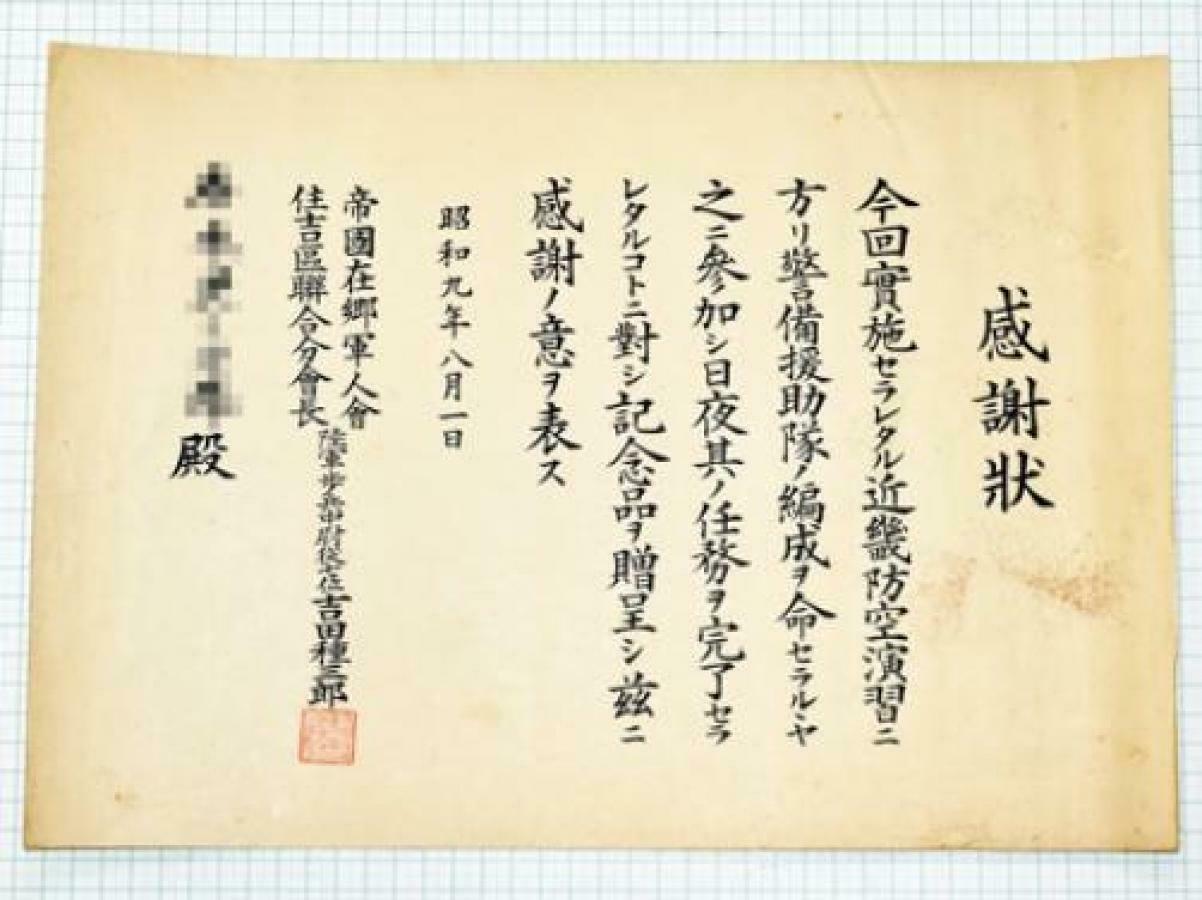 感謝狀
今回實施セラレタル近畿防空演習ニ
方リ警備援助隊ノ編成ヲ命セラルヽヤ
之ニ參加シ日夜其ノ任務ヲ完了セラ
レタルコトニ對シ記念品ヲ贈呈シ茲ニ
感謝ノ意ヲ表ス
昭和九年八月一日
帝國在郷軍人會
住吉區聯合分會長
陸軍歩兵中尉從七位吉田種三郎
殿